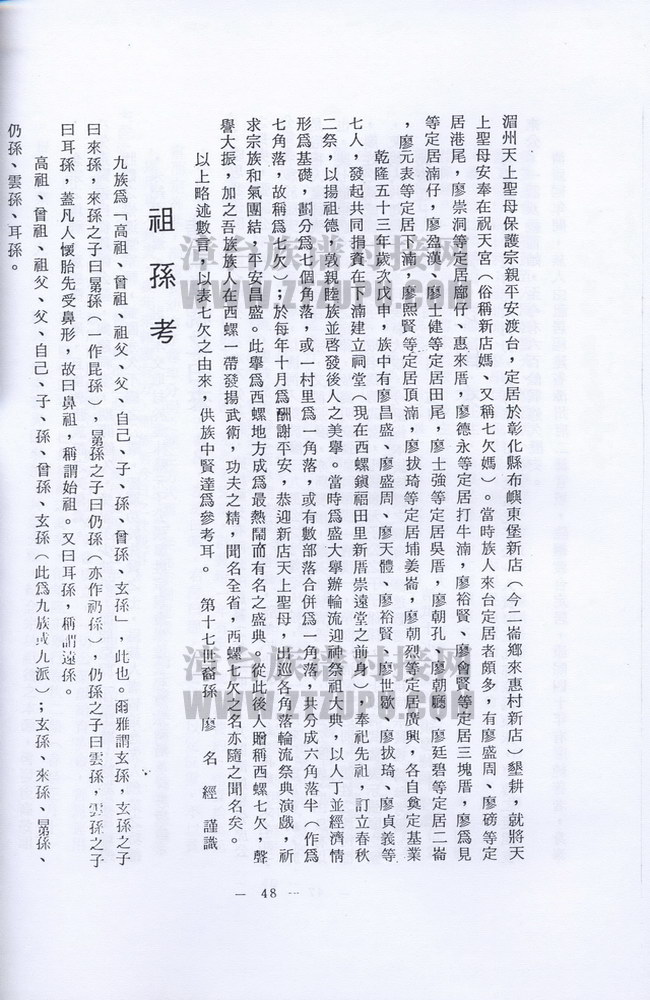 湄州天上聖母保護宗親平安渡台，定居於彰化縣布嶼東堡新店（今二崙鄉來惠村新店）墾耕，就將天
上聖母安奉在祝天宮（俗稱新店媽、又稱七欠媽）。當時族人來台定居者頗多，有廖盛周、廖磅等定
居港尾，廖崇洞等定居廍仔、惠來厝，廖德永等定居打牛湳，廖裕賢、廖會賢等定居三塊厝，廖爲見
等定居湳仔，廖盈漢、廖士健等定居田尾，廖士強等定居吳厝，廖朝孔、廖朝廳、廖廷碧等定居二崙
，廖元表等定居下湳，廖熙賢等定居頂湳，廖拔琦等定居埔姜崙，廖朝烈等定居廣興，各自奠定基業
乾隆五十三年歲次戊申，族中有廖昌盛、廖盛周、廖天體、廖裕賢、廖世歇、廖拔琦、廖貞義等
七人，發起共同捐資在下湳建立祠堂（現在西螺鎭福田里新厝崇遠堂之前身），奉祀先祖，訂立春秋
二祭，以揚祖德，敦親睦族並啓發後人之美擧。當時爲盛大擧辦輪流迎神祭祖大典，以人丁並經濟情
形爲基礎，劃分爲七個角落，或一村里爲一角落，或有數部落合併爲一角落，共分成六角落半（作爲
七角落，故稱爲七欠）；於每年十月爲酬謝平安，恭迎新店天上聖母，出巡各角落輪流祭典演戲，祈
求宗族和氣團結，平安昌盛。此擧爲西螺地方成爲最熱鬧而有名之盛典。從此後人贈稱西螺七欠，聲
譽大振，加之吾族族人在西螺一帶發揚武術，功夫之精，聞名全省，西螺七欠之名亦隨之聞名矣。
以上略述數言，以表七欠之由來，供族中賢達爲參考耳。　第十七世裔孫　廖　名　經　謹識
祖孫考
九族爲「高祖、曾祖、祖父、父、自己、子、孫、曾孫、玄孫」，此也。爾雅謂玄孫，玄孫之子
曰來孫，來孫之子曰晜孫（一作昆孫），晜孫之子曰仍孫（亦作礽孫），仍孫之子曰雲孫，雲孫之子
曰耳孫，蓋凡人懷胎先受鼻形，故曰鼻祖，稱謂始祖。又曰耳孫，稱謂遠孫。
高祖、曾祖、祖父、父、自己、子、孫、曾孫、玄孫（此爲九族或九派）；玄孫、來孫、晜孫、
仍孫、雲孫、耳孫。
— 48 —
漳台族谱对接网
WWW.ZTZUPU.COM
漳台族谱对接网
WWW.ZTZUPU.COM